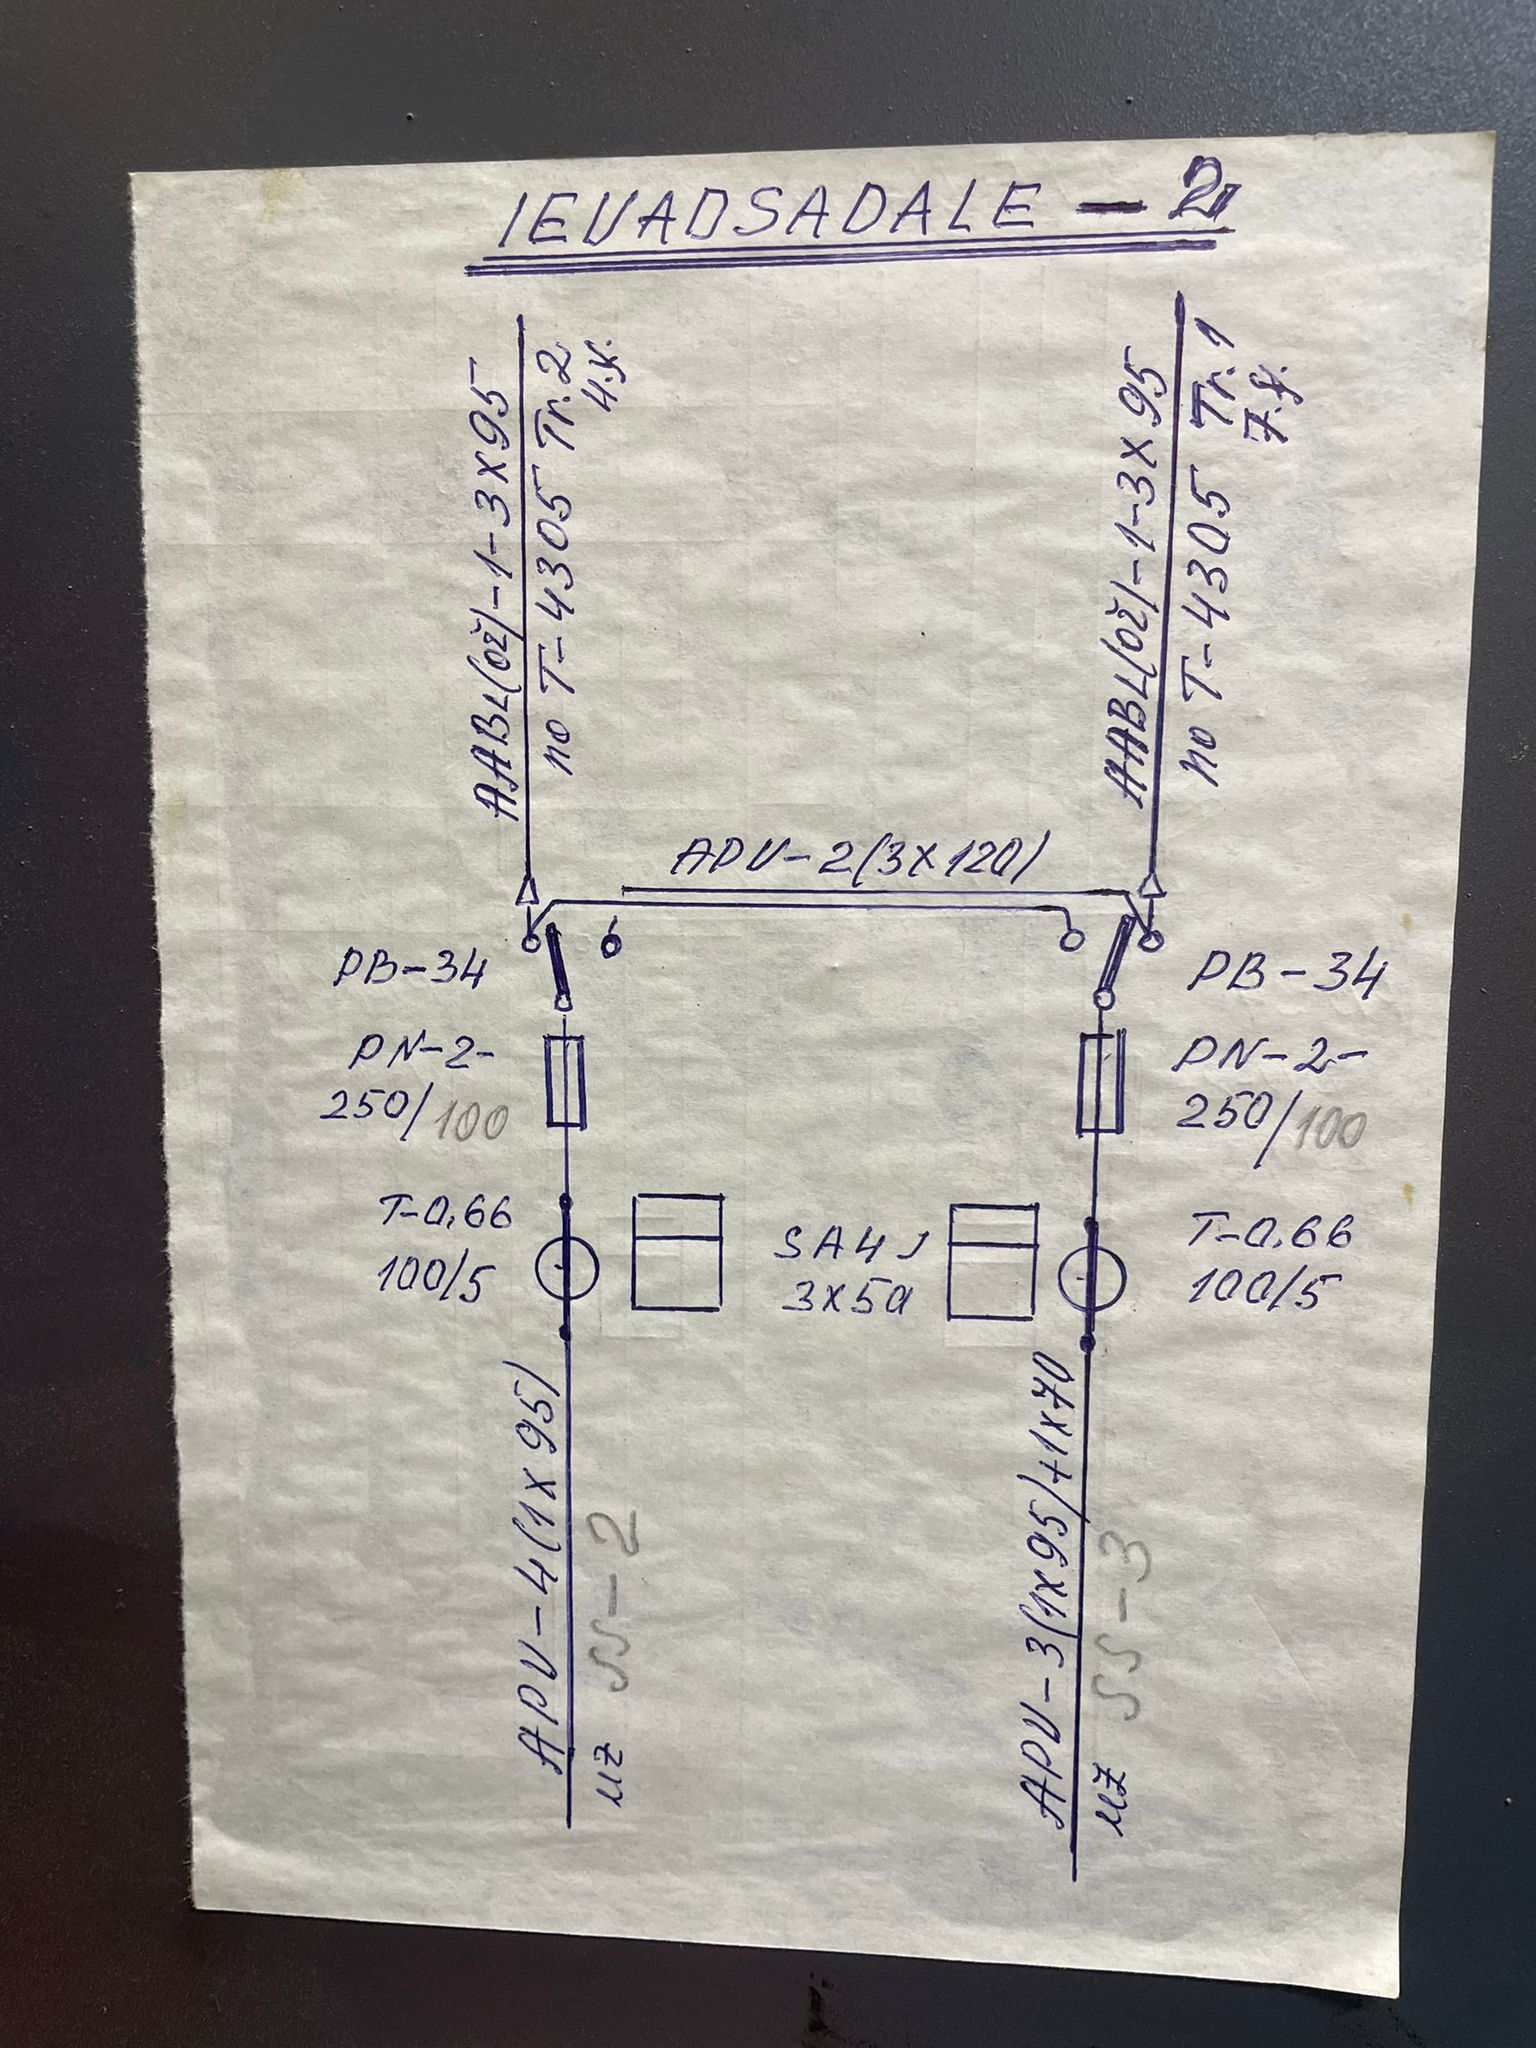 IEVADSADALE - 2
AABL(ož)-1-3x95
no T-4305 Tr.2
AABL(ož)-1-3x95
no T-4305 Tr.1
APV-2(3x120)
PB-34
PB-34
PN-2-
250/100
PN-2-
250/100
T-0,66
100/5
SA4J
3x5a
T-0,66
100/5
APV-4(1x95)
uz SS-2
APV-3(1x95)+1x70
uz SS-3